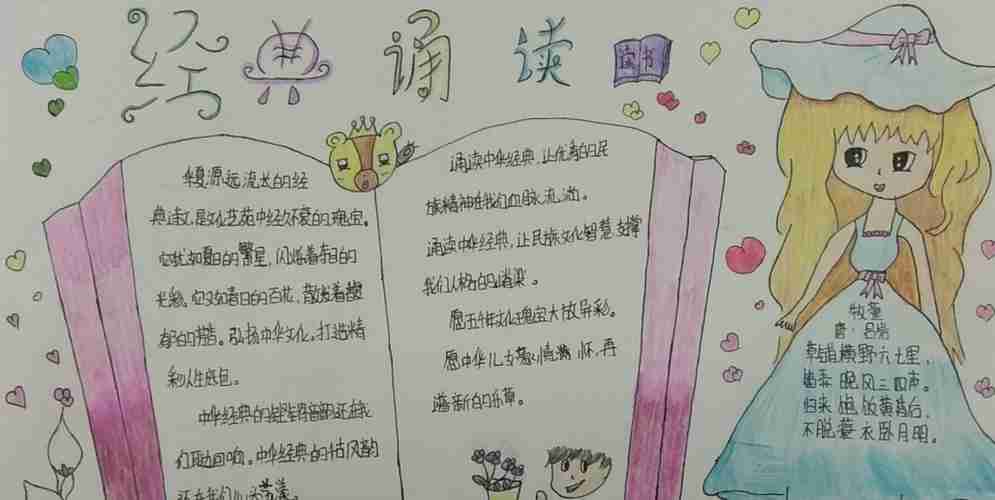 经典诵读
读书
华夏源远流长的经
典诗文,是文化艺苑中经久不衰的瑰宝。
它犹如夏日的繁星,闪烁着夺目的
光彩。它又如春日的百花,散发着馥
郁的芳香。弘扬中华文化,打造精
彩人生底色。
中华经典的铿锵音韵还在我
们耳边回响。中华经典的古风韵
还在我们心头荡漾。
诵读中华经典,让优秀的民
族精神在我们血脉流淌。
诵读中华经典,让民族文化智慧支撑
我们人格的脊梁。
愿五千年文化瑰宝大放异彩。
愿中华儿女豪情满怀,再
谱新的乐章。
牧童
唐·吕岩
草铺横野六七里,
笛弄晚风三四声。
归来饱饭黄昏后,
不脱蓑衣卧月明。